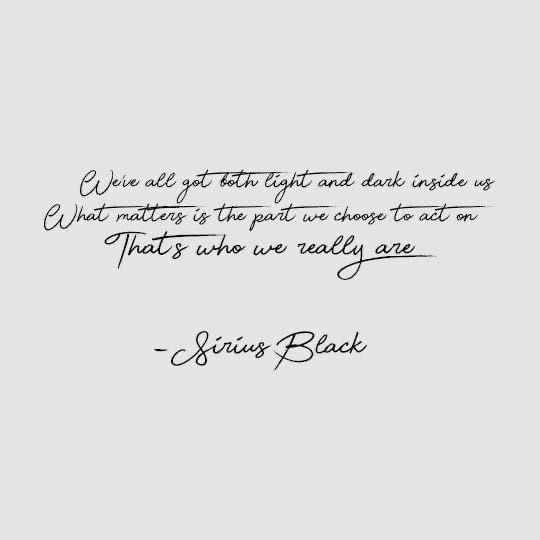 We've all got both light and dark inside us
What matters is the part we choose to act on
That's who we really are
-Sirius Black